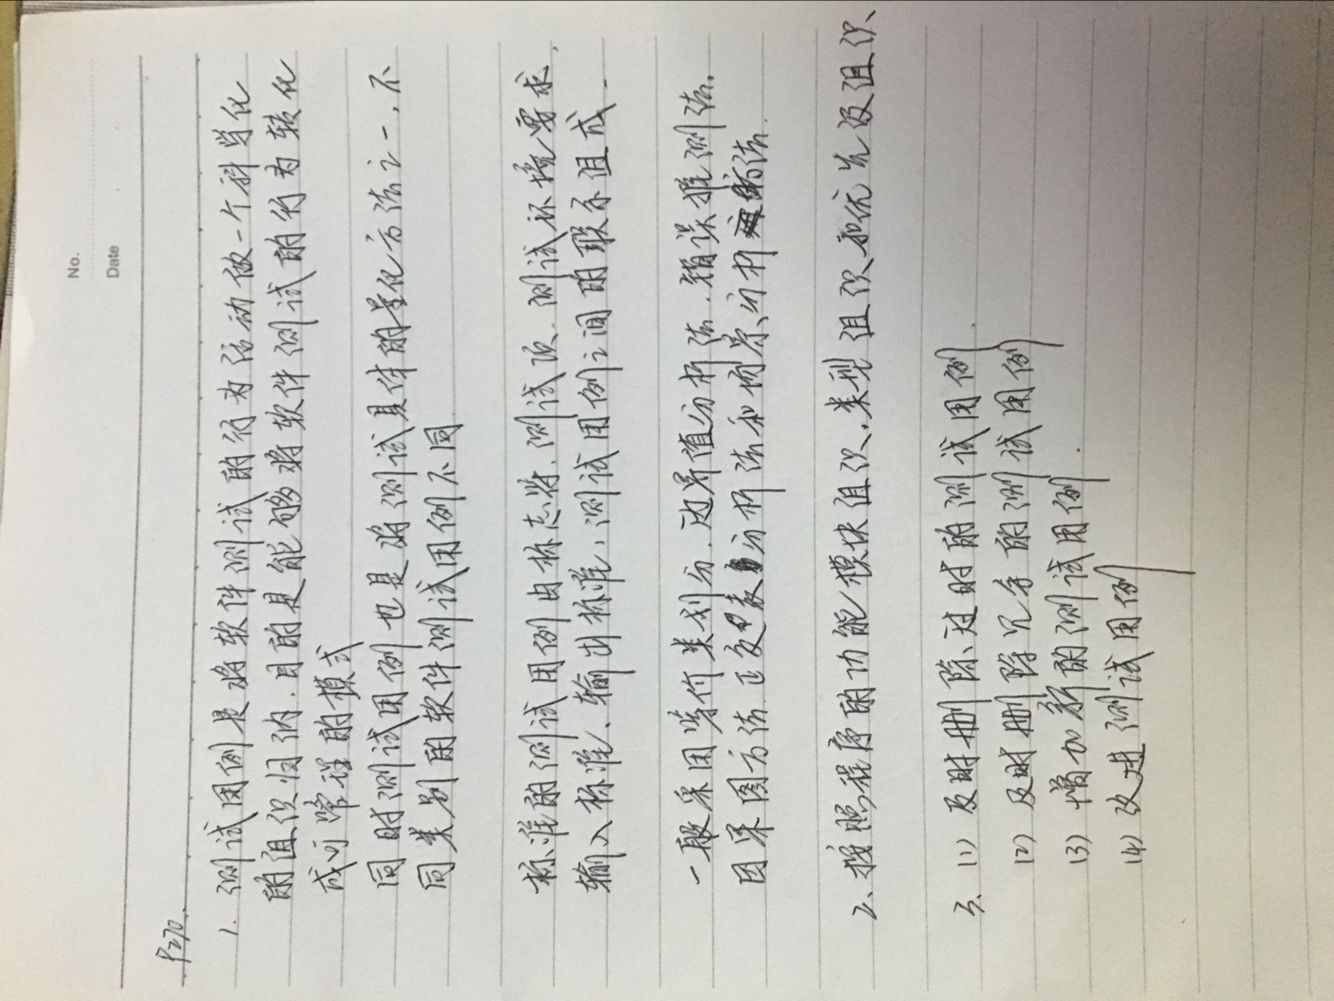 No.
Date
P270.
1. 测试用例是将软件测试的行为活动做一个科学化
的组织归纳，目的是能够将软件测试的行为转化
成可管理的模式
同时测试用例也是将测试具体的量化方法之一，不
同类别的软件测试用例不同
标准的测试用例由标志符、测试项、测试环境要求、
输入标准、输出标准、测试用例之间的联系组成.
一般采用等价类划分、边界值分析法、错误推测法、
因果图方法 正交表分析法和场景分析法.
2、按照程序的功能模块组织、类型组织和优先级组织、
3、(1) 及时删除过时的测试用例
(2) 及时删除冗余的测试用例
(3) 增加新的测试用例.
(4) 改进测试用例